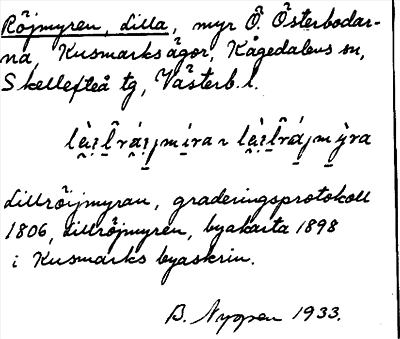 Röjmyren, Lilla, myr Ö. Österbodar-
na, Kusmarks ägor, Kågedalens sn,
Skellefteå tg, Västerb. l.
Lillröijmyran, graderingsprotokoll
1806, Lillröjmyren, byakarta 1898
i Kusmarks byaskrin.
B. 1933.